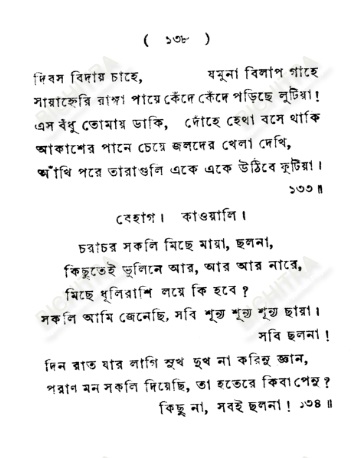 ( ১৩৮ )
দিবস বিদায় চাহে, যমুনা বিলাপ গাহে
সায়াহ্নেরি রাঙ্গা পায়ে কেঁদে কেঁদে পড়িছে লুটিয়া!
এস বঁধু তোমায় ডাকি, দোঁহে হেথা বসে থাকি
আকাশের পানে চেয়ে জলদের খেলা দেখি,
আঁখি পরে তারাগুলি একে একে উঠিবে ফুটিয়া।
১৩৩॥
বেহাগ। কাওয়ালি।
চরাচর সকলি মিছে মায়া, ছলনা,
কিছুতেই ভুলিনে আর, আর আর নারে,
মিছে ধূলিরাশি লয়ে কি হবে?
সকলি আমি জেনেছি, সবি শূন্য শূন্য শূন্য ছায়া।
সবি ছলনা!
দিন রাত যার লাগি সুখ দুখ না করিনু জ্ঞান,
পরাণ মন সকলি দিয়েছি, তা হতেরে কিবা পেনু?
কিছু না, সবই ছলনা! ১৩৪॥
BICHITRA